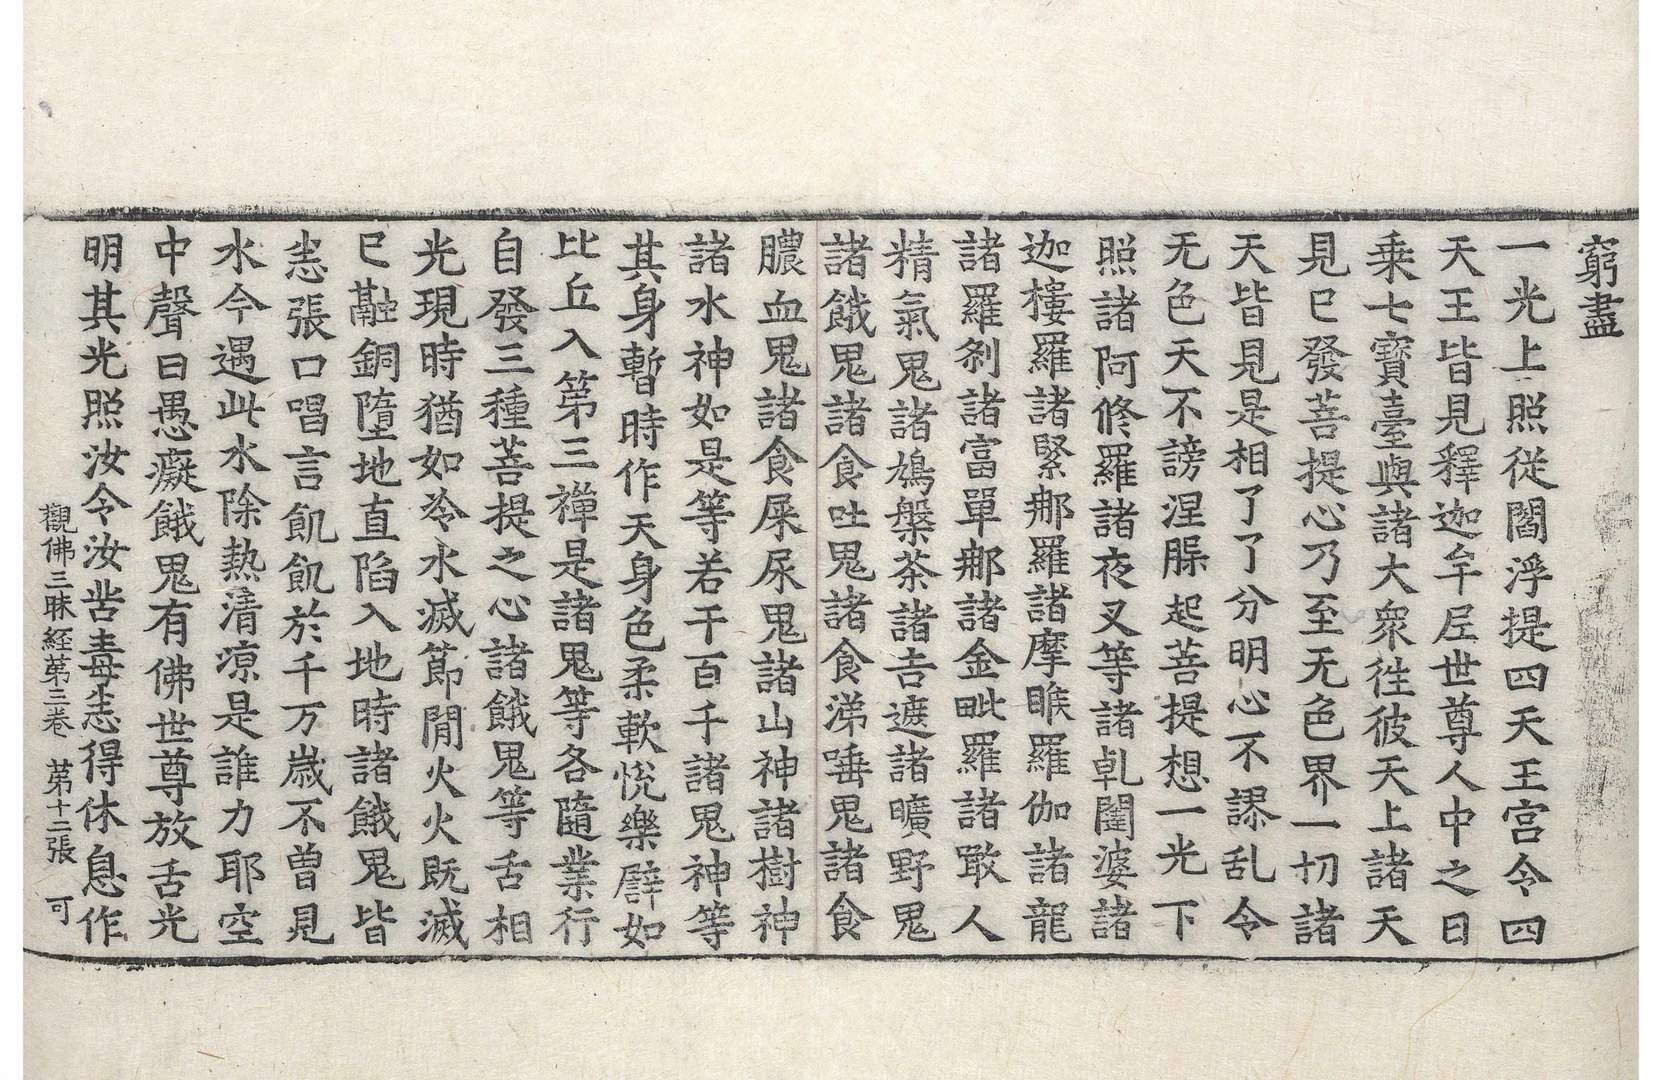 窮盡
一光上照從閻浮提四天王宮令四
天王皆見釋迦牟尼世尊人中之日
乗七寶臺與諸大衆徃彼天上諸天
見已發菩提心乃至无色界一切諸
天皆見是相了了分明心不謬乱令
无色天不謗涅槃起菩提想一光下
照諸阿修羅諸夜叉等諸乹闥婆諸
迦樓羅諸緊那羅諸摩睺羅伽諸龍
諸羅刹諸富單那諸金毗羅諸噉人
精氣鬼諸鳩槃荼諸吉遮諸曠野鬼
諸餓鬼諸食吐鬼諸食涕唾鬼諸食
膿血鬼諸食屎尿鬼諸山神諸樹神
諸水神如是等若干百千諸鬼神等
其身暫時作天身色柔軟悅樂譬如
比丘入第三禪是諸鬼等各隨業行
自發三種菩提之心諸餓鬼等舌相
光現時猶如冷水滅節閒火火既滅
已融銅墮地直陷入地時諸餓鬼皆
悉張口唱言飢飢於千万歲不曾見
水今遇此水除熱清凉是誰力耶空
中聲曰愚癡餓鬼有佛世尊放舌光
明其光照汝令汝苦毒悉得休息作
觀佛三昧経第三卷 第十二張 可